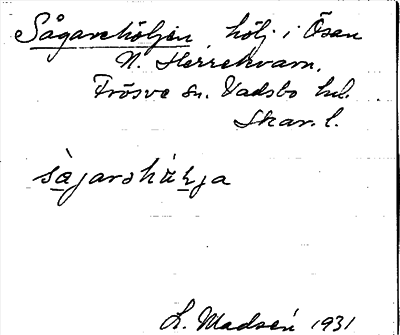 Sågarehöljen hölj i Ösan
N. Herrekvarn.
Frösve sn. Vadsbo hd.
Skar. l.
L. Madsén 1931